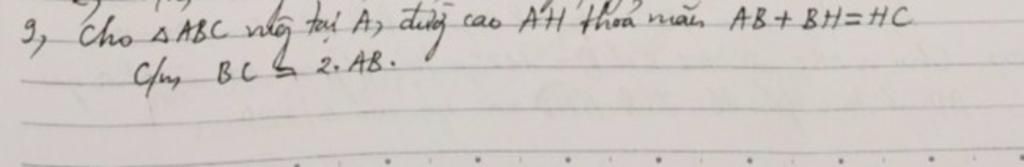 9, Cho △ABC vuông tại A, đường cao AH thoả mãn AB + BH = HC
C/m BC = 2. AB.